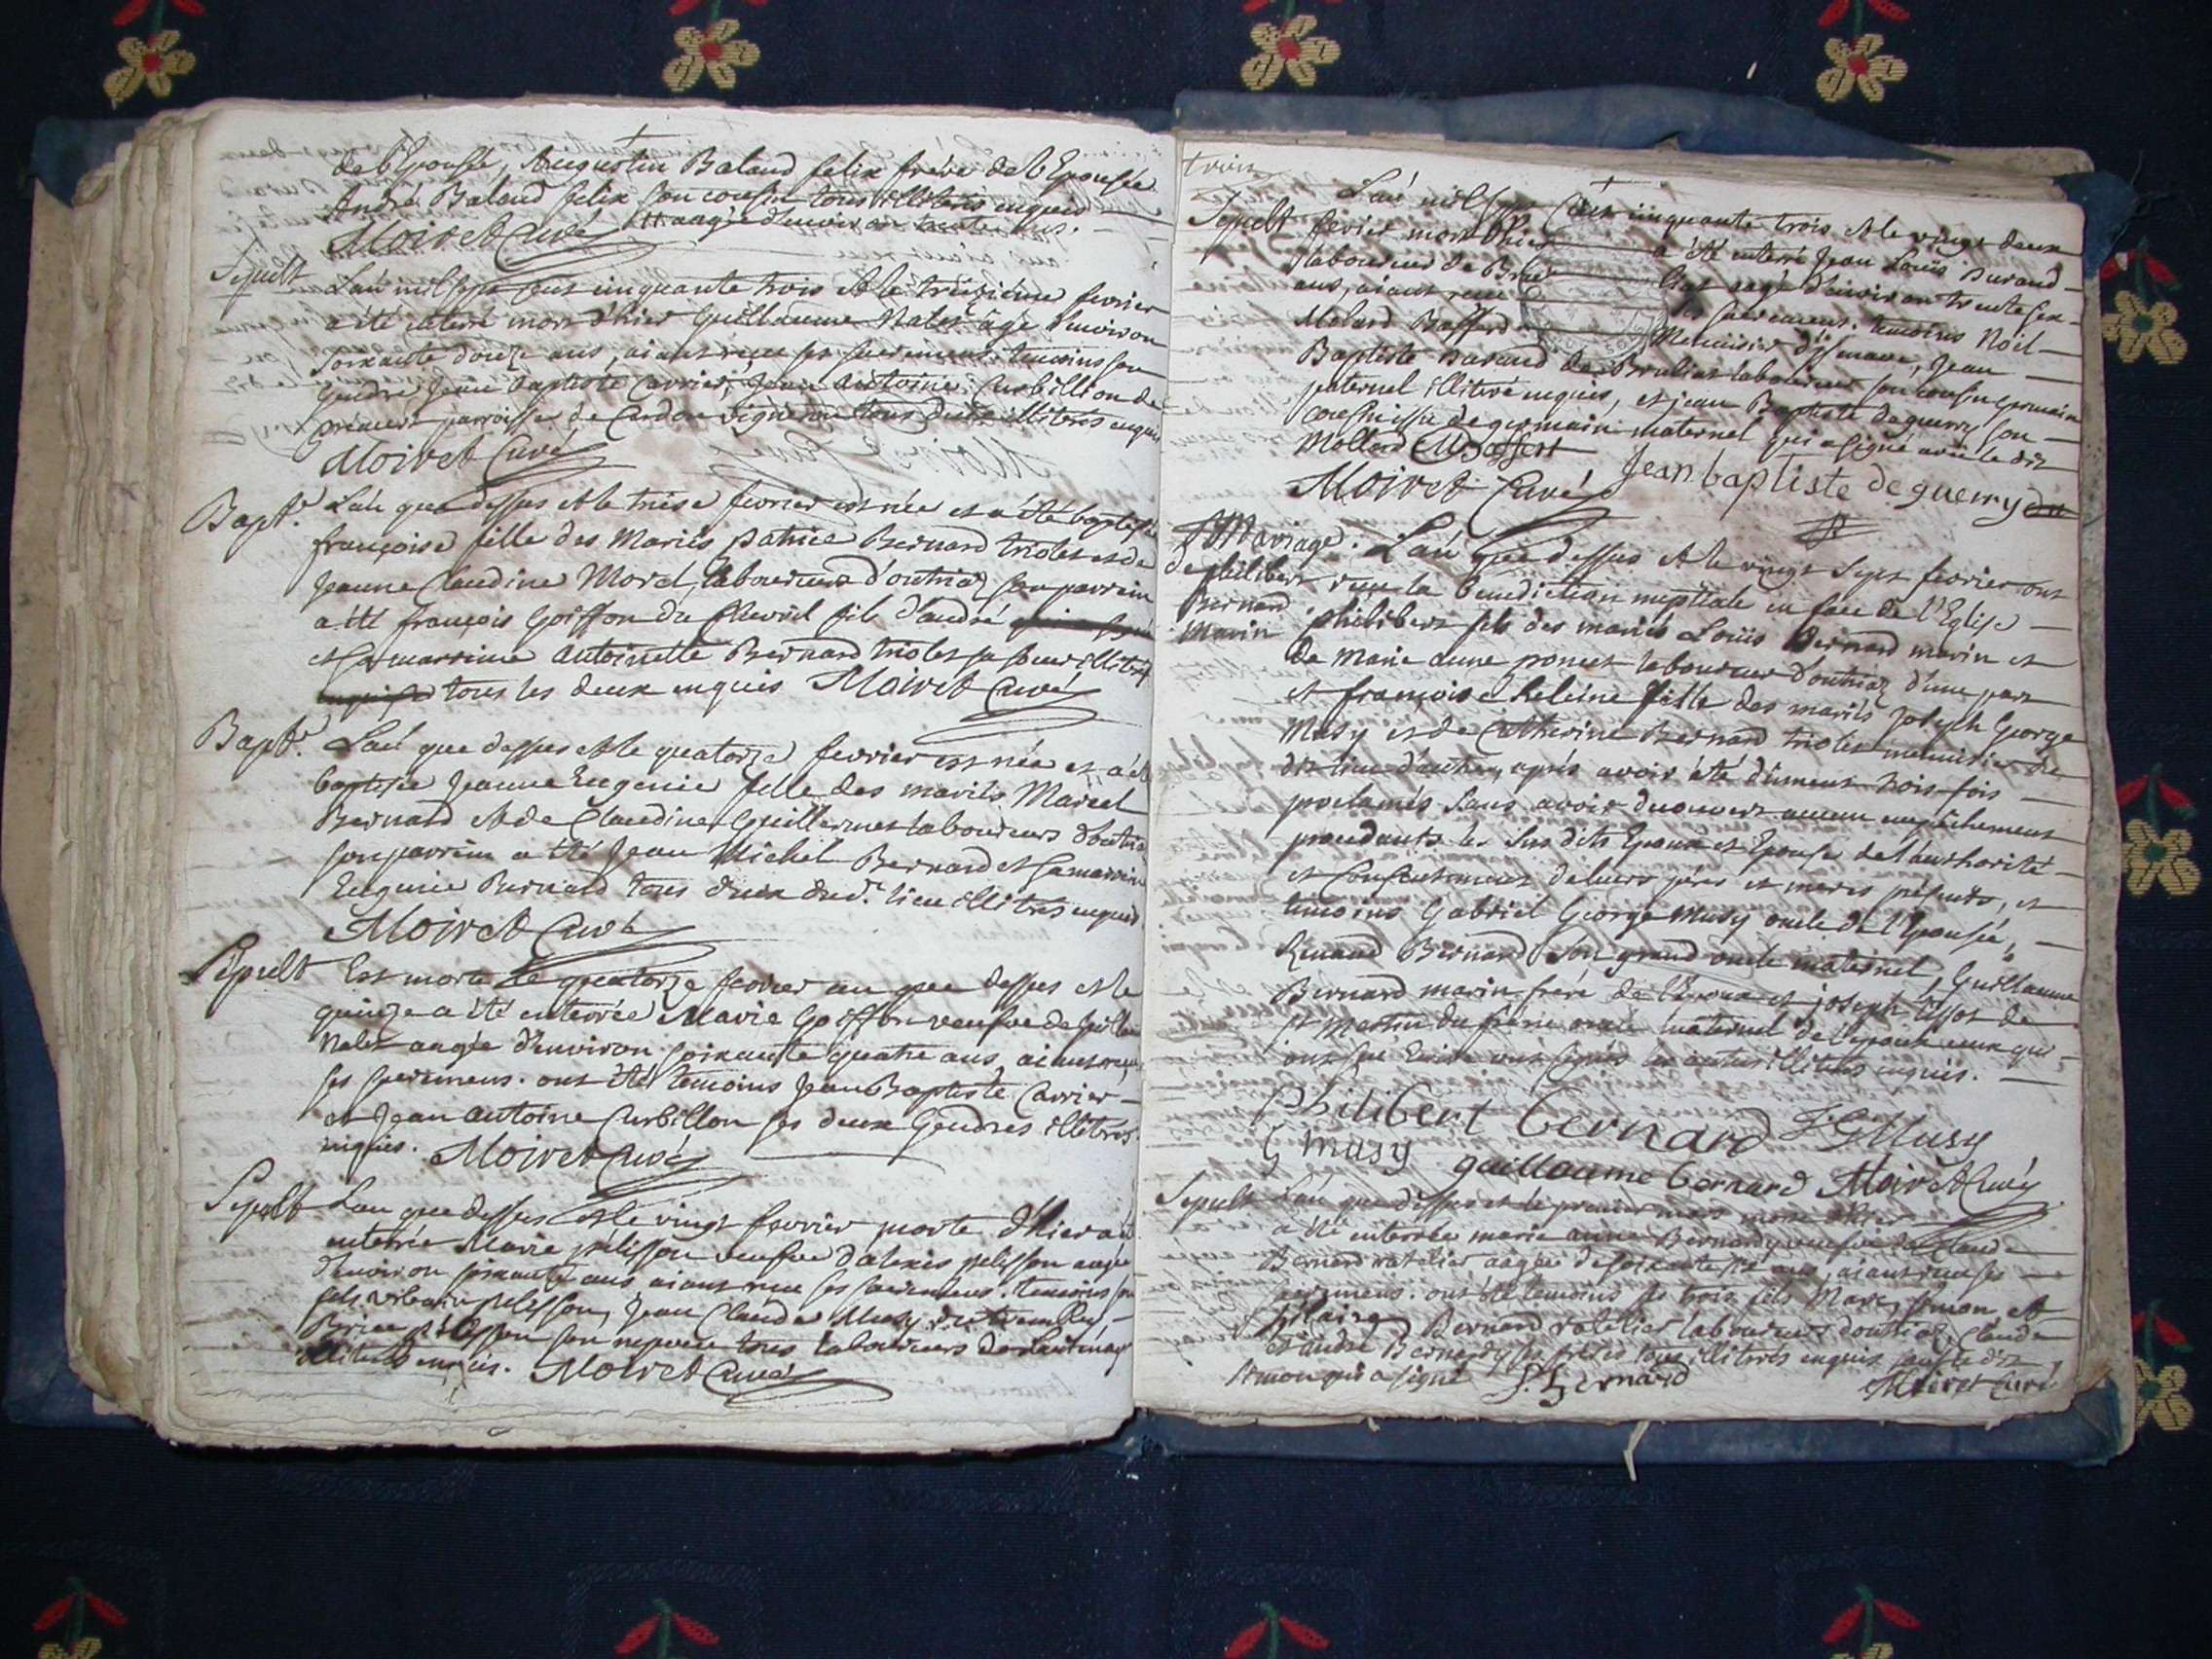 de l'Epouse, Augustin Baland felix frere de l'Epousée
André Baland felix son cousin tous illiterés enquis
Moiret Curé aagé d'environ trente ans.
Sepult L'an mil sept cent cinquante trois et le treizième fevrier
a été enterré mort d'hier Guillaume Nalet âgé d'environ
soixante douze ans, aiant receu ses sacremens. temoins son
gendre Jean Baptiste Carrier, Jean Antoine Curbillion de
parroisse de Cerdon vigneron tous deux illiterés enquis
Moiret Curé
Bapt. L'an que dessus et le treise fevrier est née et a été baptisée
françoise fille des Mariés patrice Bernard triolet et de
Jeanne Claudine Morel, laboureurs d'outriaz son parrain
a été françois Goiffon du Chevril fils d'andré
et sa marraine Antoinette Bernard triolet sa soeur illiterés
tous les deux enquis Moiret Curé
Bapt. L'an que dessus et le quatorze fevrier est née et a été
baptisée Jeanne Eugenie fille des mariés Marcel
Bernard et de Claudine Guillermet laboureurs d'outria
son parrain a été Jean Michel Bernard et sa marraine
Eugenie Bernard tous deux dud. lieu illiterés enquis
Moiret Curé
Sepult Est morte le quatorze fevrier an que dessus et le
quinze a été enterrée Marie Goiffon veufve de Guillaume
Nalet aagée d'environ soixante quatre ans, aiant receu
ses sacremens. ont été temoins Jean Baptiste Carrier
et Jean Antoine Curbillon ses deux Gendres illiterés
enquis. Moiret Curé
Sepult L'an que dessus et le vingt fevrier morte d'hier a été
enterrée Marie pélisson veufve d'alexis pelisson aagée
d'environ soixante ans aiant receu ses sacremens. temoins son
fils urbain pelisson, Jean Claude Musy
Brice pélisson son neveu tous laboureurs de Lantenay
illiterés enquis. Moiret Curé
trois
L'an mil sept cent cinquante trois et le vingt deux
Sepult fevrier mort d'hier a été enterré Jean Louis Durand
laboureur de aagé d'environ trente six
ans, aiant receu ses sacremens. temoins Noël
Molard Baffert Menuisier d'Isenave, Jean
Baptiste Durand de Brulliat laboureur son cousin germain
paternel illiteré enquis, et jean Baptiste deguerry son
cousin issu de germain maternel qui a signé avec le dit
Mollard N Baffert
Moiret Curé Jean baptiste de guerry
Mariage. L'an que dessus et le vingt sept fevrier ont
de philibert receu la benediction nuptiale en face de l'Eglise
Bernard philibert fils des mariés Louis Bernard marin et
Marin de Marie anne poncet laboureur d'outriaz d'une part
et françoise heleine fille des mariés Joseph George
Musy et de Catherine Bernard triolet menuisier du
dit lieu d'autre, aprés avoir été düment trois fois
proclamés sans avoir decouvert aucun empêchement
procedants les susdits Epoux et Epouse de l'authorité
et Consentement de leurs péres et meres présents, et
temoins Gabriel George Musy oncle de l'Epousée,
Renaud Bernard son grand oncle maternel, Guillaume
Bernard marin frere de l'Epoux et joseph tissot de
St Martin du frene oncle maternel de l'epoux ceux qui
ont sçu Ecrire ont signés les autres illiterés enquis.
Philibert bernard J G Musy
G musy guillaume bernard Moiret Curé
Sepult L'an que dessus et le premier mars morte d'hier
a été enterrée marie anne Bernardy veufve de Claude
Bernard ratelier aagée de soixante six ans, aiant receu ses
sacremens. ont été temoins ses trois fils Marc, simon et
hilaire Bernard ratelier laboureurs d'outriaz, Claude
et andré Bernardy ses freres tous illiterés enquis sauf le dit
simon qui a signé S. Bernard Moiret Curé